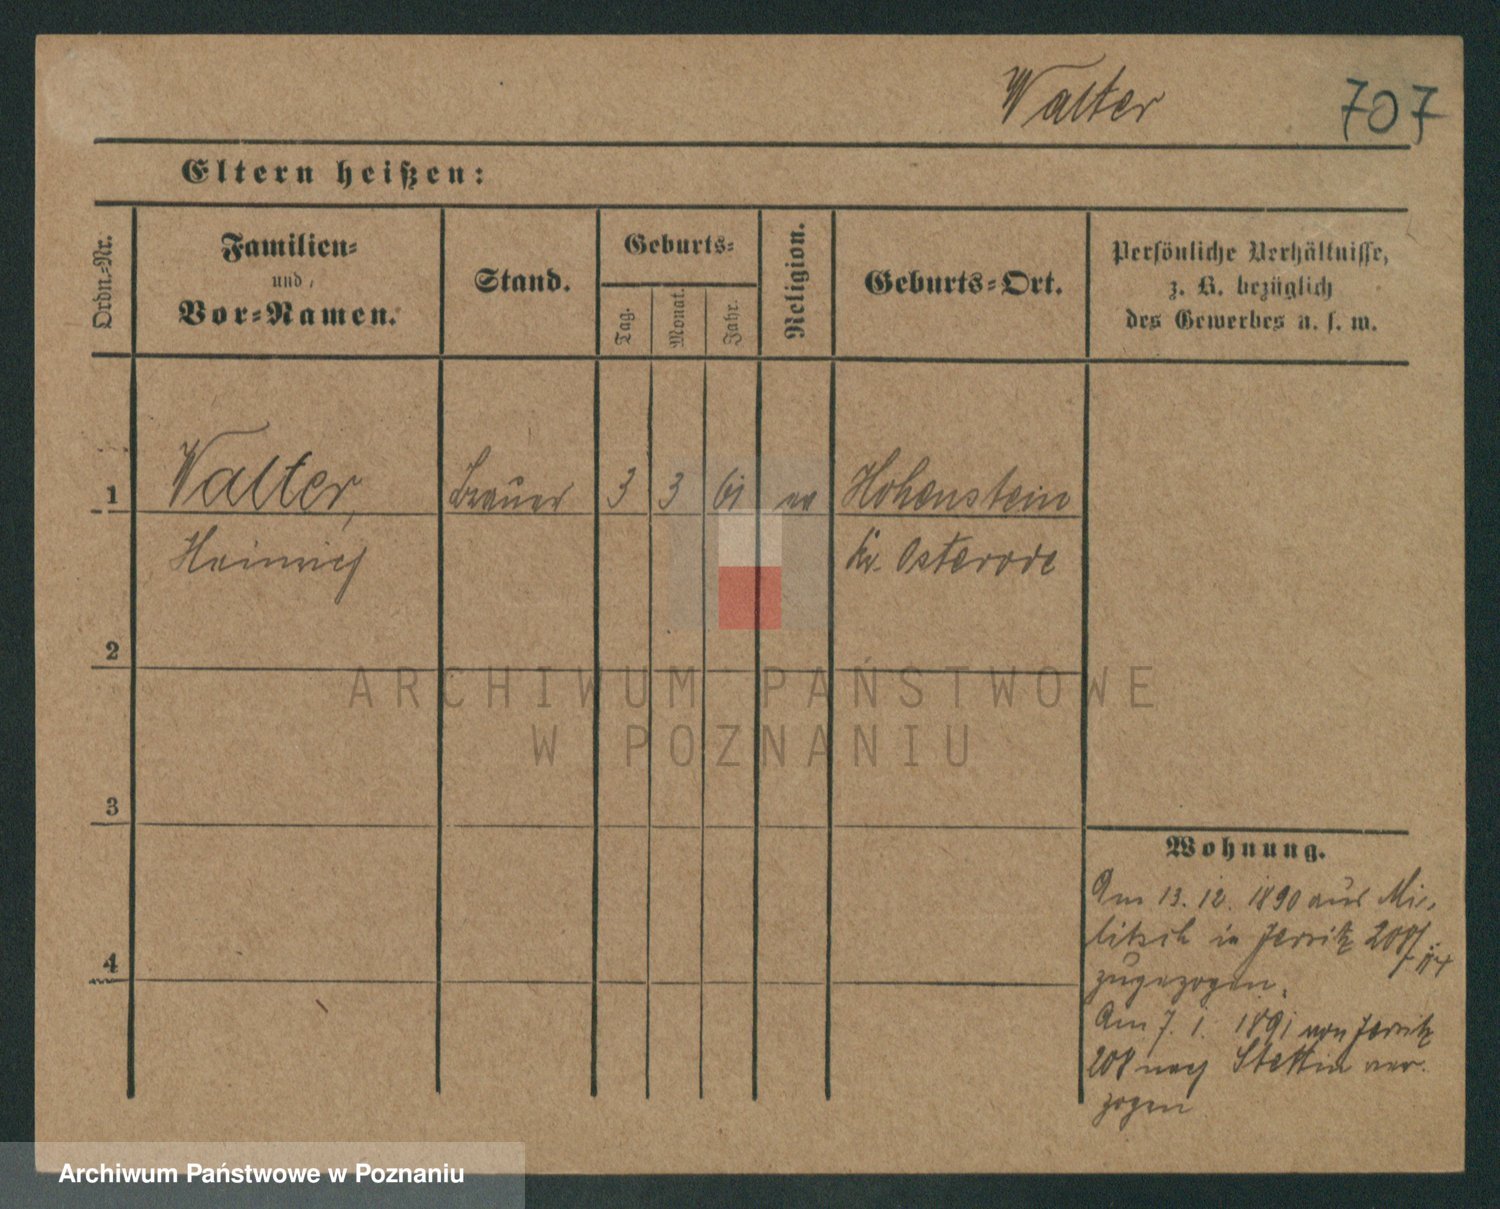 Walter 707
Eltern heißen:
Ordn.-Nr.
Familien-
und
Vor-Namen.
Stand.
Geburts-
Tag.
Monat.
Jahr.
Religion.
Geburts-Ort.
Persönliche Verhältnisse,
z. B. bezüglich
des Gewerbes u. s. w.
1 Walter, Brauer 3 3 61 ev Hohenstein
Heinrich Kr. Osterode
2
3
4
Wohnung.
Am 13. 12. 1890 aus Mi-
litsch in Jersitz 208
zugezogen.
Am 7. 1. 1891 von Jersitz
208 nach Stettin ver-
zogen
ARCHIWUM PAŃSTWOWE
W POZNANIU
Archiwum Państwowe w Poznaniu